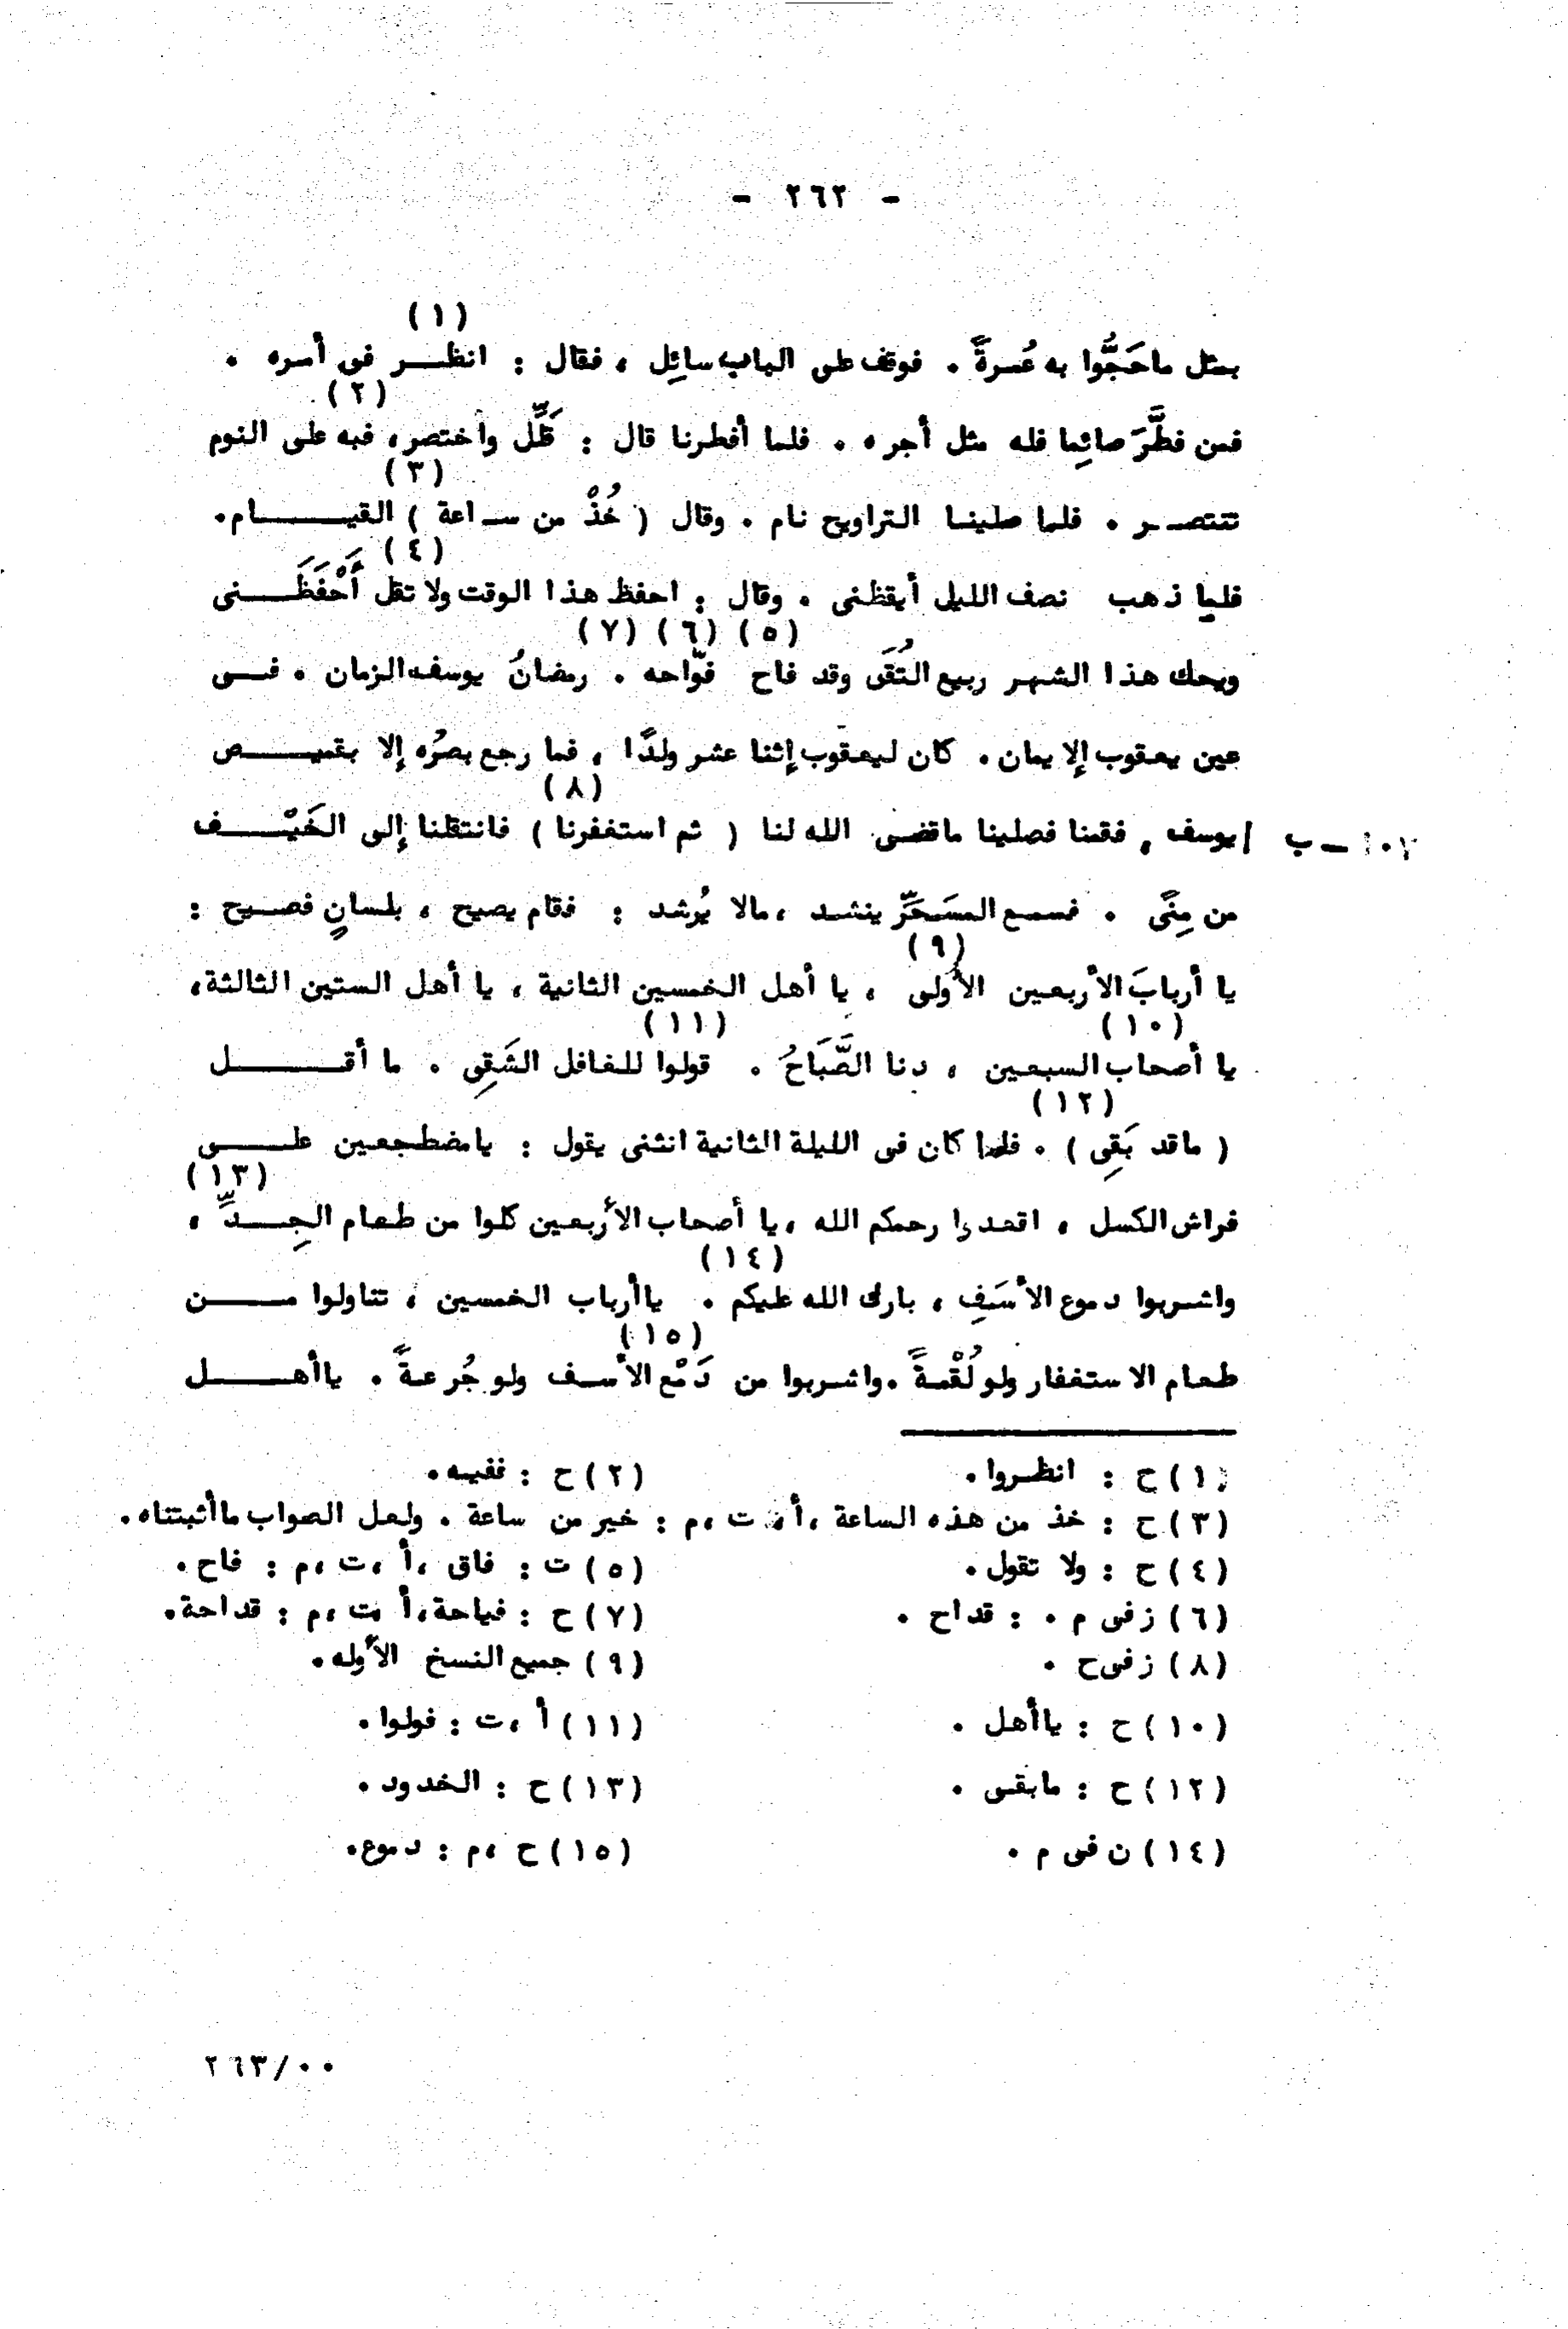 - ٢٦٢ -
(١)
بمثل ماحَجُّوا به عُسرةً . فوقف على الباب سائِل ، فقال : انظـــر فى أمره .
(٢)
فمن فطَّرَ صائِما فله مثل أجره . فلما أفطرنا قال : قَلِّل واختصر، فبه على النوم
(٣)
تنتصــر . فلما صلينـا التراويح نام . وقال ( خُذْ من ســاعة ) القيـــــام.
(٤)
فلما ذهب نصف الليل أيقظنى . وقال : احفظ هذا الوقت ولا تقل أَحْفَظَـــنى
(٥) (٦) (٧)
ويحك هذا الشهر ربيع التُقَى وقد فاح فوّاحه . رمضانُ يوسف الزمان . فــى
عين يعقوب إلا يمان . كان ليعقوب إثنا عشر ولدًا ، فما رجع بصرُه إلا بقميــــص
(٨)
١٠٧ – ب / يوسف ، فقمنا فصلينا ماقضى الله لنا ( ثم استغفرنا ) فانتقلنا إلى الخَيْــــف
من مِنًى . فسمـع المسَحَرِّ ينشـد ، مالا يُرشد : فقام يصيح ، بلسانٍ فصـيح :
(٩)
يا أربابَ الأربعين الأولى ، يا أهل الخمسين الثانية ، يا أهل الستين الثالثة،
(١٠) (١١)
يا أصحاب السبعين ، دنا الصَّبَاحُ . قولوا للغافل الشَقِى . ما أقـــــــل
(١٢)
( ماقد بَقِى ) . فلما كان فى الليلة الثانية انثنى يقول : يامضطجعين علــــى
(١٣)
فراش الكسل ، اقعدوا رحمكم الله ، يا أصحاب الأربعين كلوا من طعام الجِـــدِّ ،
(١٤)
واشـربوا دموع الأسَفِ ، بارك الله عليكم . ياأرباب الخمسين ، تناولوا مـــــن
(١٥)
طعام الاستغفار ولو لُقْمةً . واشـربوا من دَمْع الأسـف ولو جُرعـةً . ياأهـــــل
(١) ح : انظـروا . (٢) ح : ففيـه .
(٣) ح : خذ من هذه الساعة ، أ ، ت ،م : خير من ساعة . ولعل الصواب ماأثبتناه .
(٤) ح : ولا تقول . (٥) ت : فاق ، أ ،ت ،م : فاح .
(٦) ز فى م . : قداح . (٧) ح : فياحة، أ ،ت ،م : قداحة.
(٨) ز فى ح . (٩) جميع النسخ الأوله .
(١٠) ح : ياأهل . (١١) أ ،ت : فولوا .
(١٢) ح : مابقـى . (١٣) ح : الخدود .
(١٤) ن فى م . (١٥) ح ،م : دموع.
٢٦٣/٠٠